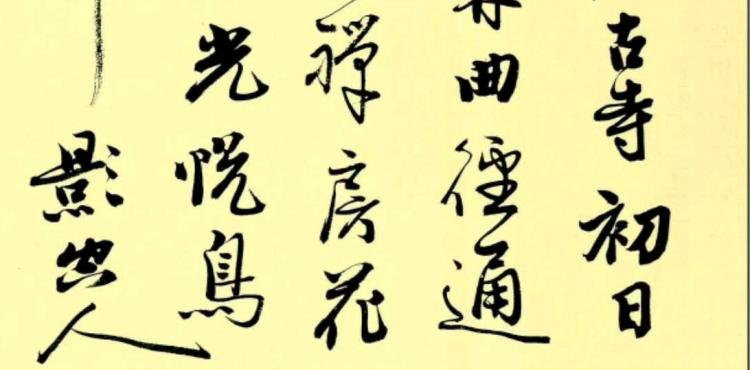 古寺初日
曲徑通
禪房花
光悅鳥
影空人